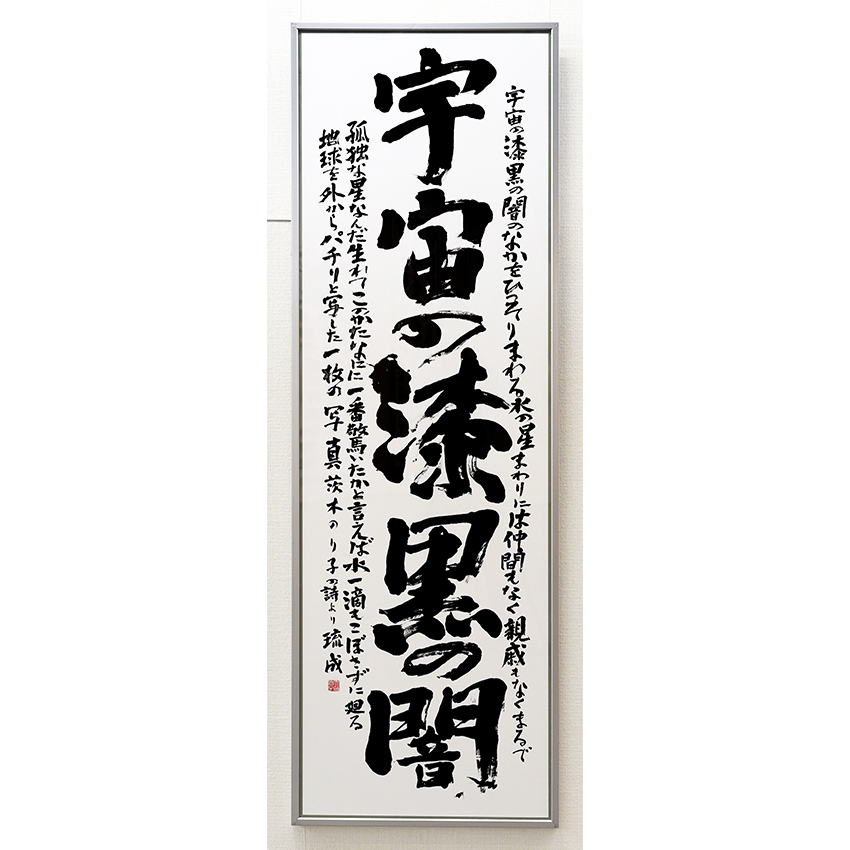 宇宙の漆黒の闇のなかをひっそりまわる水の星まわりには仲間もなく親戚もなくまるで
宇宙の漆黒の闇
孤独な星なんだ生れてこのかたなにに一番驚いたかと言えば水一滴もこぼさずに廻る
地球を外からパチリと写した一枚の写真茨木のり子の詩より琉成